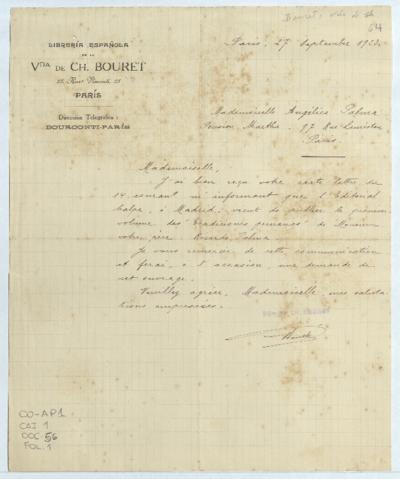 Bouret, Vda de Ch
64
LIBRERÍA ESPAÑOLA
DE LA
Vda DE CH. BOURET
23, Rue Visconti, 23
PARÍS
Dirección Telegráfica :
BOURCONTI-PARÍS
Paris, 27 Septembre
Mademoiselle Angélica Palma
Pension Martha. 97 Rue Lauriston
Paris
Mademoiselle,
J'ai bien reçu votre carte-lettre du
14 courant m'informant que l'Editorial
Calpe, à Madrid, vient de publier le premier
volume des "Tradiciones peruanas" de Monsieur
votre père Ricardo Palma.
Je vous remercie de cette communication
et ferai, à l'occasion, une demande de
cet ouvrage.
Veuillez agréer, Mademoiselle, mes saluta-
tions empressées.
CO-AP1
CAJ 1
DOC 56
FOL. 1